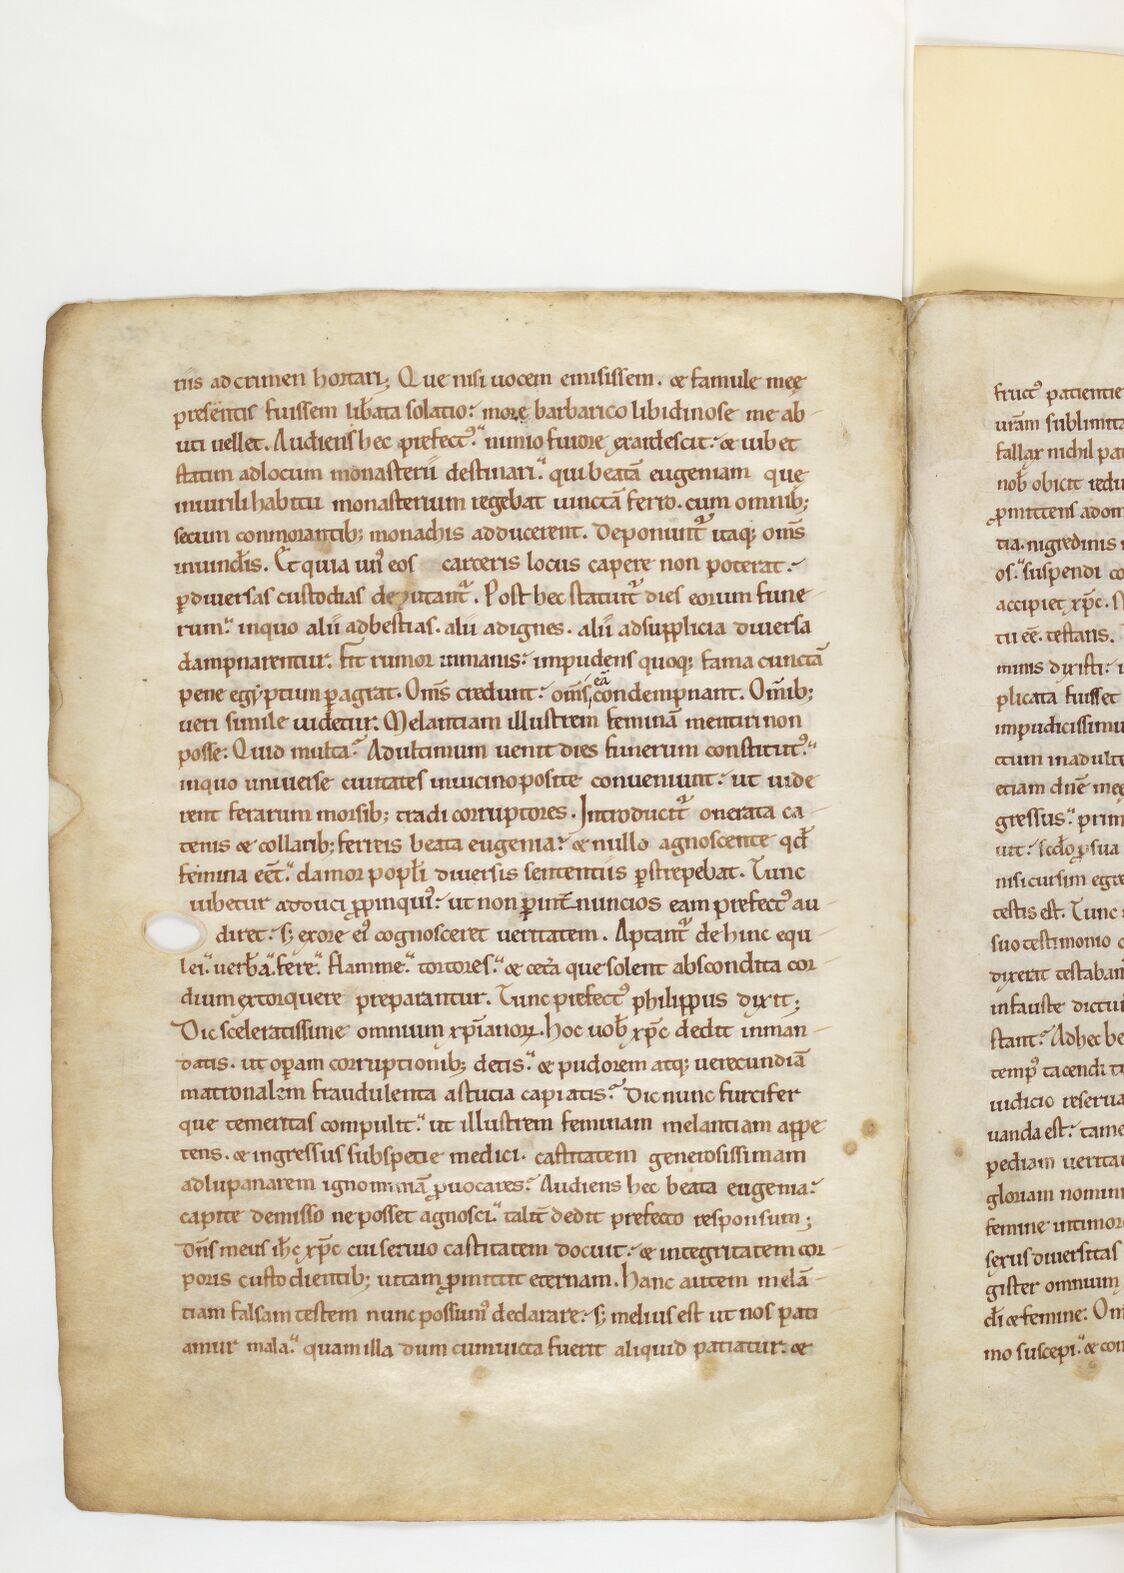 riis ad crimen hortari; Que nisi uocem emisissem. & famule meę
presentis fuissem lib̄ata solatio: more barbarico libidinose me ab-
uti uellet. Audiens hec prefect᾽ nimio furore exardescit: & iubet
statim ad locum monasterii destinari. qui beatā eugeniam quę
in uirili habitu monasterium regebat uinctā ferro. cum omnib;
secum conmorantib; monachis adducerent. Deponunt᾽ itaq; om̄s
in uinclis. Et quia un᾽ eos carceris locus capere non poterat.
ꝑ diuersas custodias deputant᾽. Post hec statuit᾽ dies eorum fune-
rum. in quo alii ad bestias. alii ad ignes. alii ad supplicia diuersa
dampnarentur. Fit rumor inmanis: impudens quoq; fama cunctā
pene egyptium ꝑagrat. Om̄s credunt: om̄s eā condempnant. Om̄ib;
ueri simile uidetur. Melantiam illustrem feminā mentiri non
posse: Quid multa? Ad ultimum uenit dies funerum constitut᾽.
in quo uniuerse ciuitates in uicino posite conueniunt: ut uide
rent ferarum morsib; tradi corruptores. Introducit᾽ onerata ca-
tenis & collarib; ferreis beata eugenia: & nullo agnoscente qđ
femina eēt. clamor popłi diuersis sententiis ꝑstrepebat. Tunc
iubetur adduci ꝓpinqui᾽: ut non ꝑ int̄nuncios eam prefect᾽ au-
diret: s; ex ore ei᾽ cognosceret ueritatem. Aptant᾽ dehinc equ-
lei. uerb̄a. fere. flamme. tortores. & cet̄a que solent abscondita cor-
dium extorquere preparantur. Tunc prefect᾽ philippus dixit;
Dic sceleratissime omnium xp̄ianoꝝ. hoc uob̄ xp̄c dedit in man-
datis. ut oꝑam corruptionib; detis. & pudorem atq; uerecundiā
matronalem fraudulenta astucia capiatis? Dic nunc furcifer
que temeritas compulit. ut illustrem feminam melantiam appe
tens. & ingressus sub specie medici. castitatem generosissimam
ad lupanarem ignominiā ꝓuocares? Audiens hec beata eugenia:
capite demisso ne posset agnosci. talit̄ dedit prefecto responsum;
Dn̄s meus ih̄c xp̄c cui seruio castitatem docuit: & integritatem cor-
poris custodientib; uitam ꝓmittit eternam. Hanc autem melā-
tiam falsam testem nunc possum᾽ declarare: s; melius est ut nos pati
amur mala. quam illa dum conuicta fuerit aliquid patiatur: &
fruct᾽ patientie
fallax nichil
nob̄ obicit
ꝓmittens
tia. nigredinis
os. suspendi
accipiet xp̄c.
tu eē. testaris.
minis dixisti:
plicata fuisset
ctum in adulte
etiam dn̄e meę
gressus. prim
nisi cursim
testis est. Tunc
suo testimonio
dixerat testaban
infauste dictu
stant? Adhec be
temp᾽ tacendi
iudicio reserua
uanda est: tame
pediam uerita
gloriam nomin
femine intimor
sexus diuersitas
gister omnium
di & femine: Om
mo suscepi. & con